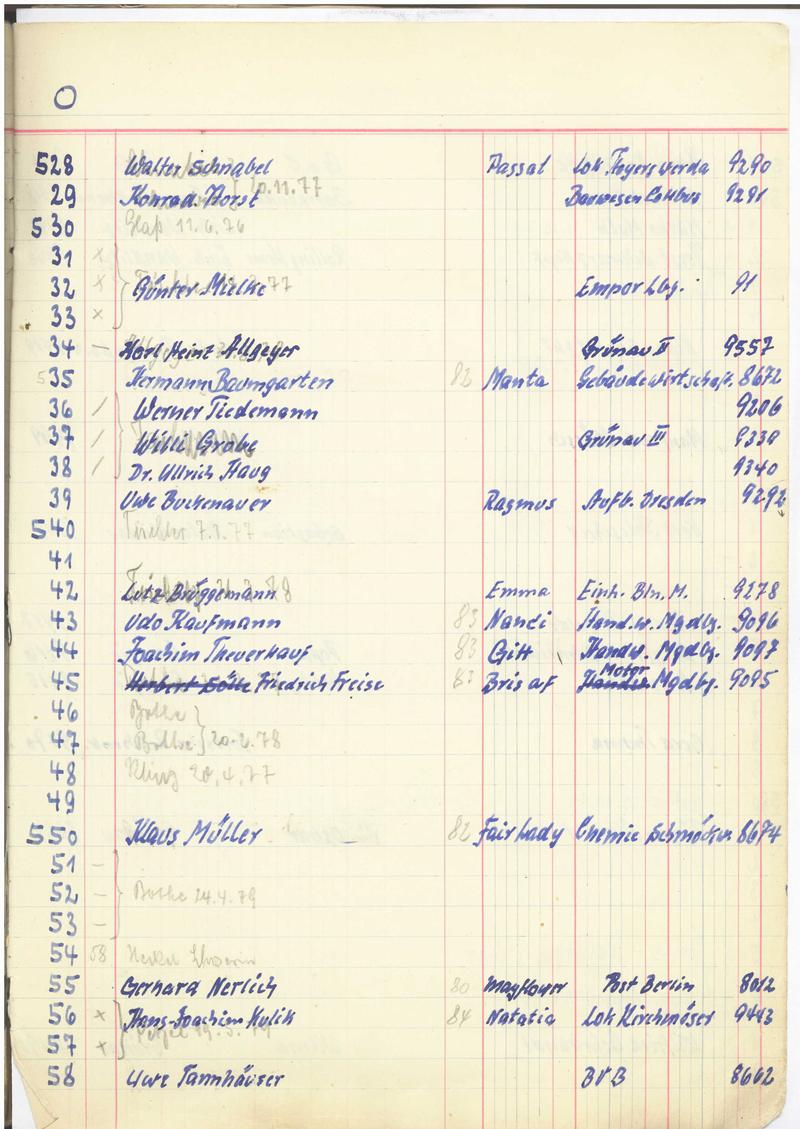 O
528 Walter Schnabel Passat Lok. Hoyerswerda 9290
29 Konrad Horst 20.11.77 Bauwesen Cottbus 9291
530 11.6.76
31 x
32 x Günter Mielke Empor Lbg. 91
33 x
34 – Karl Heinz Allgeyer Grünau II 9557
535 Hermann Baumgarten 82 Manta Gebäudewirtschaft. 8672
36 / Werner Tiedemann 9206
37 / Willi Grabe Grünau III 9339
38 / Dr. Ullrich Haug 9340
39 Uwe Buckenauer Rasmus Aufb. Dresden 9292
540 7.1.77
41
42 Lutz Brüggemann Emma Einh. Bln. M. 9278
43 Udo Kaufmann 83 Nandi Hand.w. Mgdbg. 9096
44 Joachim Theuerkauf 83 Gitt Handw. Mgdbg. 9097
45 Friedrich Freise 83 Brisaf Motor Mgdbg. 9095
46 Bothe
47 Bothe 20.2.78
48 Kling 20.4.77
49
550 Klaus Müller 82 Fair Lady Chemie Schmöckw. 8674
51 –
52 – Bothe 24.4.79
53 –
54 58
55 Gerhard Nerlich 80 Mayflower Post Berlin 8012
56 x Hans-Joachim Kulik 84 Natatia Lok Kirchmöser 9443
57 x
58 Uwe Tannhäuser BVB 8662